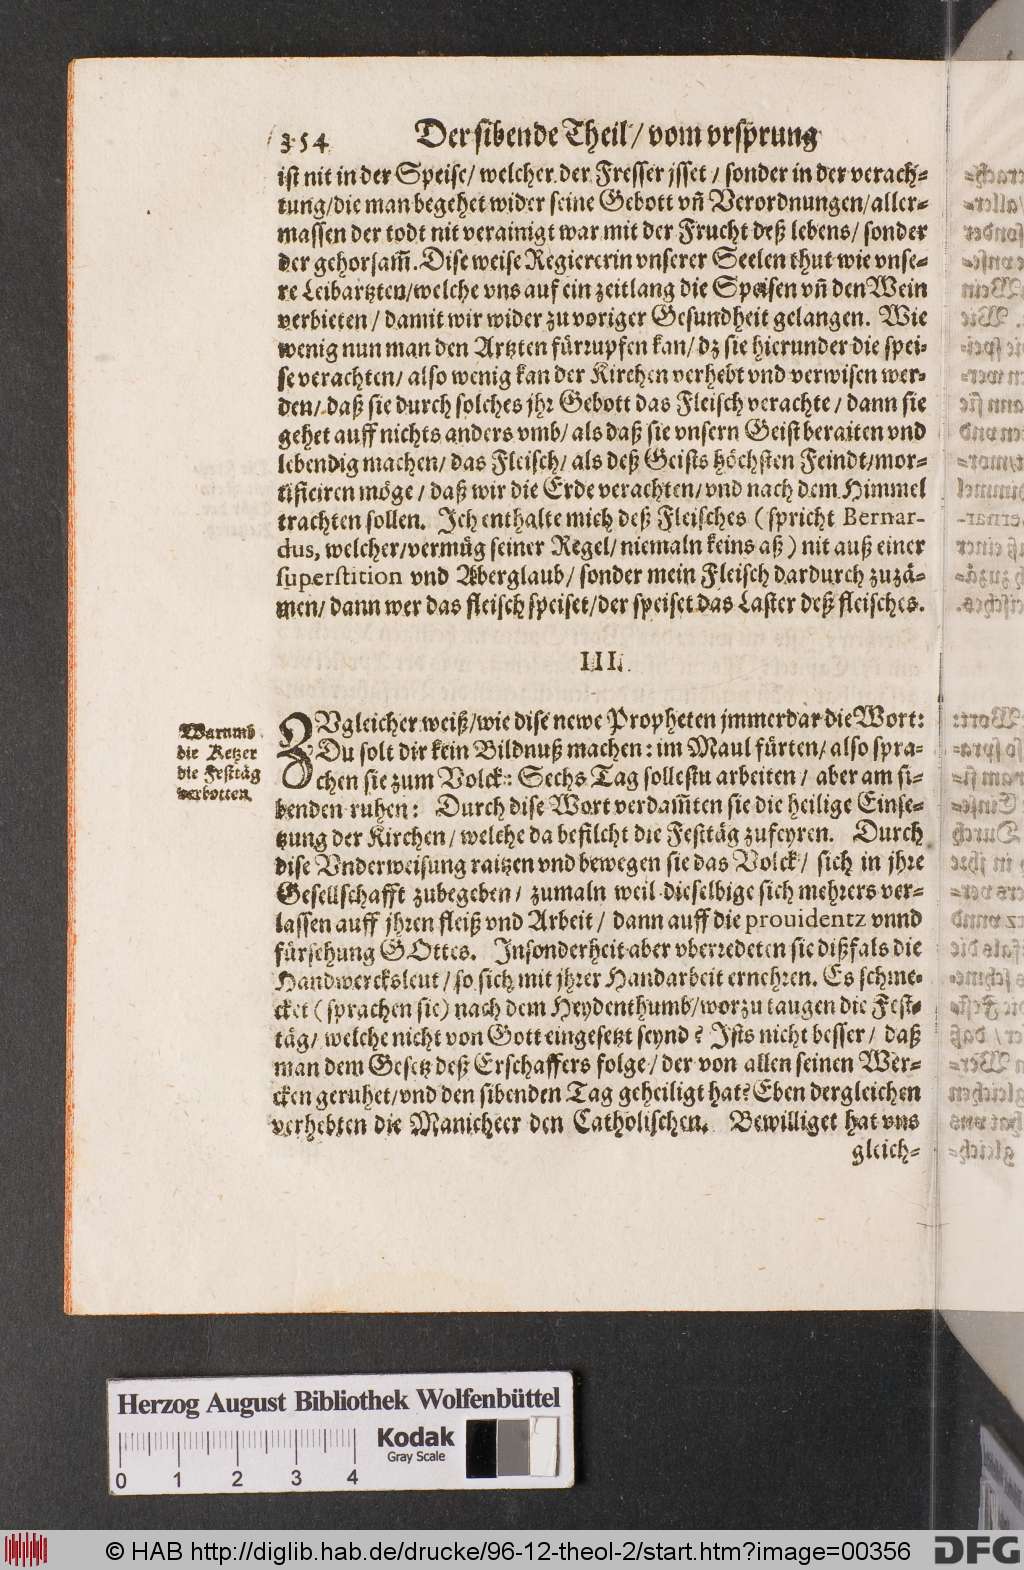 354 Der sibende Theil / vom vrsprung
ist nit in der Speise / welcher der Fresser jsset / sonder in der verach-
tung / die man begehet wider seine Gebott vñ Verordnungen / aller-
massen der todt nit verainigt war mit der Frucht deß lebens / sonder
der gehorsam̃. Dise weise Regiererin vnserer Seelen thut wie vnse-
re Leibartzten / welche vns auf ein zeitlang die Speisen vñ den Wein
verbieten / damit wir wider zu voriger Gesundheit gelangen. Wie
wenig nun man den Artzten fürrupfen kan / dz sie hierunder die spei-
se verachten / also wenig kan der Kirchen verhebt vnd verwisen wer-
den / daß sie durch solches jhr Gebott das Fleisch verachte / dann sie
gehet auff nichts anders vmb / als daß sie vnsern Geist beraiten vnd
lebendig machen / das Fleisch / als deß Geists höchsten Feindt / mor-
tificiren möge / daß wir die Erde verachten / vnd nach dem Himmel
trachten sollen. Ich enthalte mich deß Fleisches ( spricht Bernar-
dus, welcher / vermüg seiner Regel / niemaln keins aß ) nit auß einer
superstition vnd Aberglaub / sonder mein Fleisch dardurch zuzä-
men / dann wer das fleisch speiset / der speiset das Laster deß fleisches.
III.
Warumb
die Ketzer
die Festtäg
verbotten.
ZVgleicher weiß / wie dise newe Propheten jmmerdar die Wort:
Du solt dir kein Bildnuß machen: im Maul fürten / also spra-
chen sie zum Volck: Sechs Tag sollestu arbeiten / aber am si-
benden ruhen: Durch dise Wort verdam̃ten sie die heilige Einse-
tzung der Kirchen / welche da befilcht die Festtäg zufeyren. Durch
dise Vnderweisung raitzen vnd bewegen sie das Volck / sich in jhre
Gesellschafft zubegeben / zumaln weil dieselbige sich mehrers ver-
lassen auff jhren fleiß vnd Arbeit / dann auff die prouidentz vnnd
fürsehung GOttes. Insonderheit aber vberredeten sie dißfals die
Handwercksleut / so sich mit jhrer Handarbeit ernehren. Es schme-
cket ( sprachen sie ) nach dem Heydenthumb / worzu taugen die Fest-
täg / welche nicht von Gott eingesetzt seynd? Ists nicht besser / daß
man dem Gesetz deß Erschaffers folge / der von allen seinen Wer-
cken geruhet / vnd den sibenden Tag geheiligt hat? Eben dergleichen
verhebten die Manicheer den Catholischen. Bewilliget hat vns
gleich-
Herzog August Bibliothek Wolfenbüttel
Kodak
Gray Scale
0 1 2 3 4
© HAB http://diglib.hab.de/drucke/96-12-theol-2/start.htm?image=00356
DFG